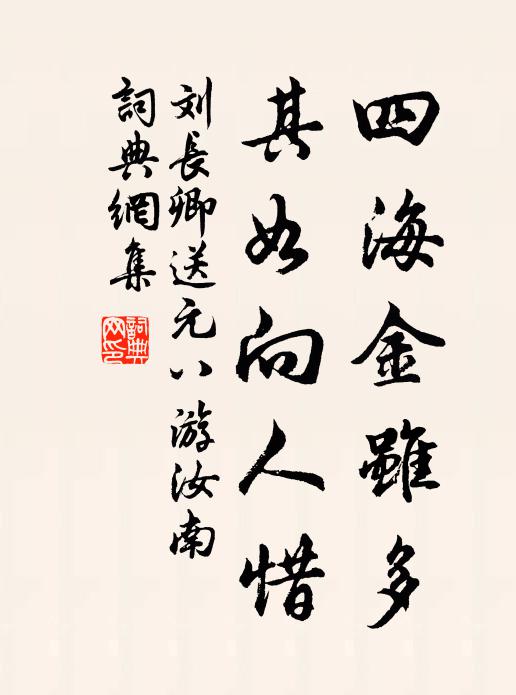 四海金雖多
其如向人惜
刘長卿送元八游汝南
詞典網集
詞典
网印